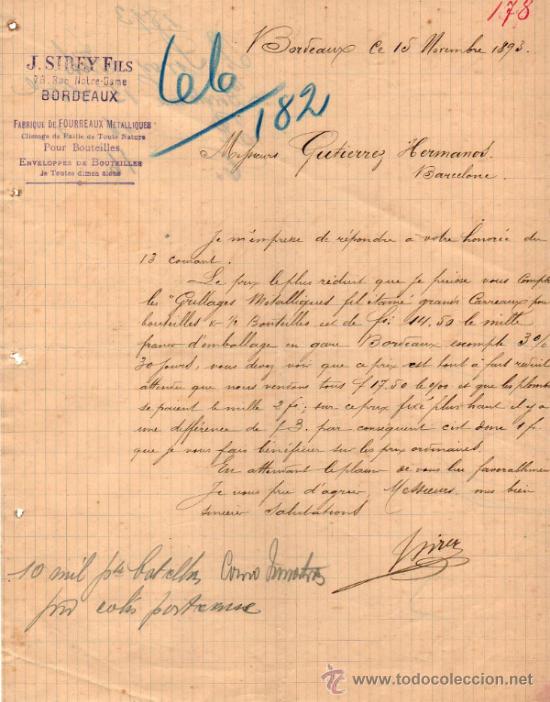 178
Bordeaux Ce 15 Novembre 1893.
J. SIREY FILS
78. Rue Notre-Dame
BORDEAUX
FABRIQUE DE FOURREAUX METALLIQUES
de Paille de Toute Nature
Pour Bouteilles
ENVELOPPES DE BOUTEILLES
de Toutes dimensions
66/182
Messieurs Gutierrez Hermanos.
Barcelone.
Je m'empresse de répondre à votre honorée du
13 courant.
Le prix le plus réduit que je puisse vous compter
les "Grillages Metalliques fil étamé grands Carreaux pour
bouteilles & ½ Bouteilles est de 14.50 le mille
franco d'emballage en gare Bordeaux escompte 3%
30 jours, vous devez voir que ce prix est tout à fait réduit
attendu que nous vendons tous f 17.50 le %00 et que les plombs
se paient le mille 2 f; sur ce prix fixé plus haut il y a
une différence de f 3. par conséquent c'est donc 1 f.
que je vous fais bénéficier sur les prix ordinaires.
En attendant le plaisir de vous lire favorablement
Je vous prie d'agréer, Messieurs, mes bien
sincères Salutations
10 mil botellas Como
por
todocoleccion.net